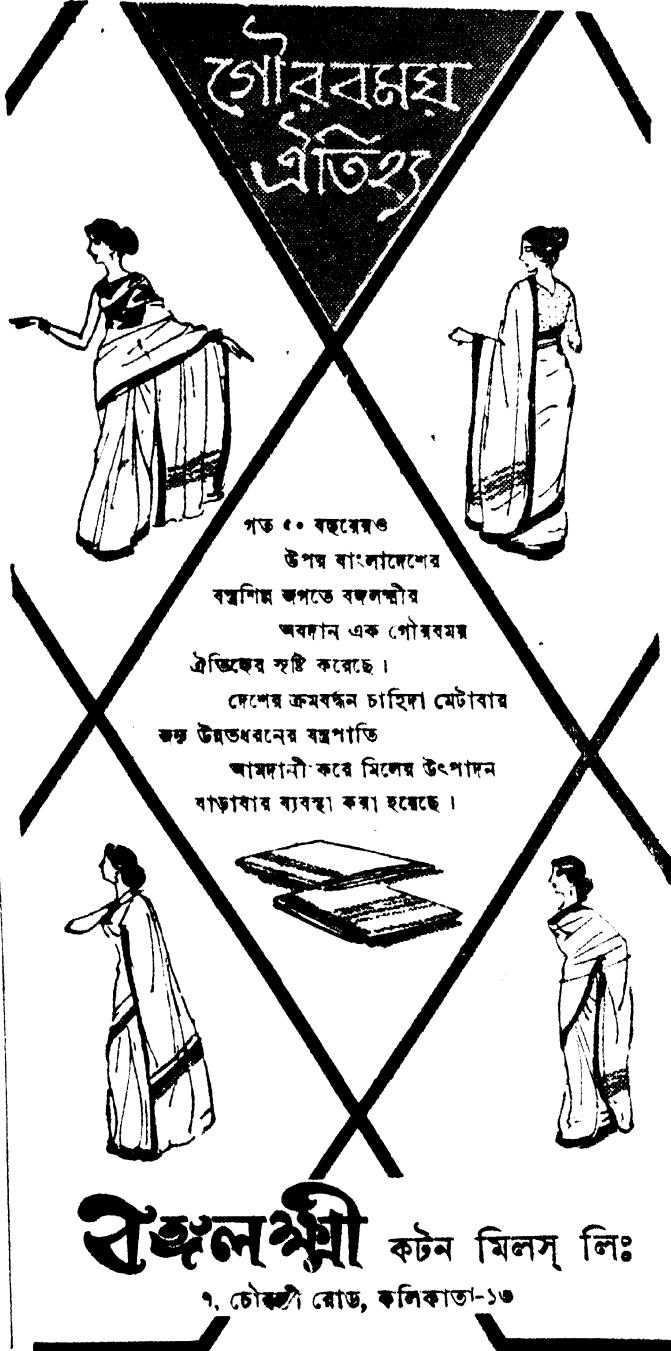 গৌরবময়
ঐতিহ্য
গত ৫০ বছরেরও
উপর বাংলাদেশের
বস্ত্রশিল্প জগতে বঙ্গলক্ষ্মীর
অবদান এক গৌরবময়
ঐতিহ্যের সৃষ্টি করেছে ।
দেশের ক্রমবর্দ্ধন চাহিদা মেটাবার
জন্য উন্নতধরনের যন্ত্রপাতি
আমদানী করে মিলের উৎপাদন
বাড়াবার ব্যবস্থা করা হয়েছে ।
বঙ্গলক্ষ্মী কটন মিলস্ লিঃ
৭, চৌরঙ্গী রোড, কলিকাতা-১৩